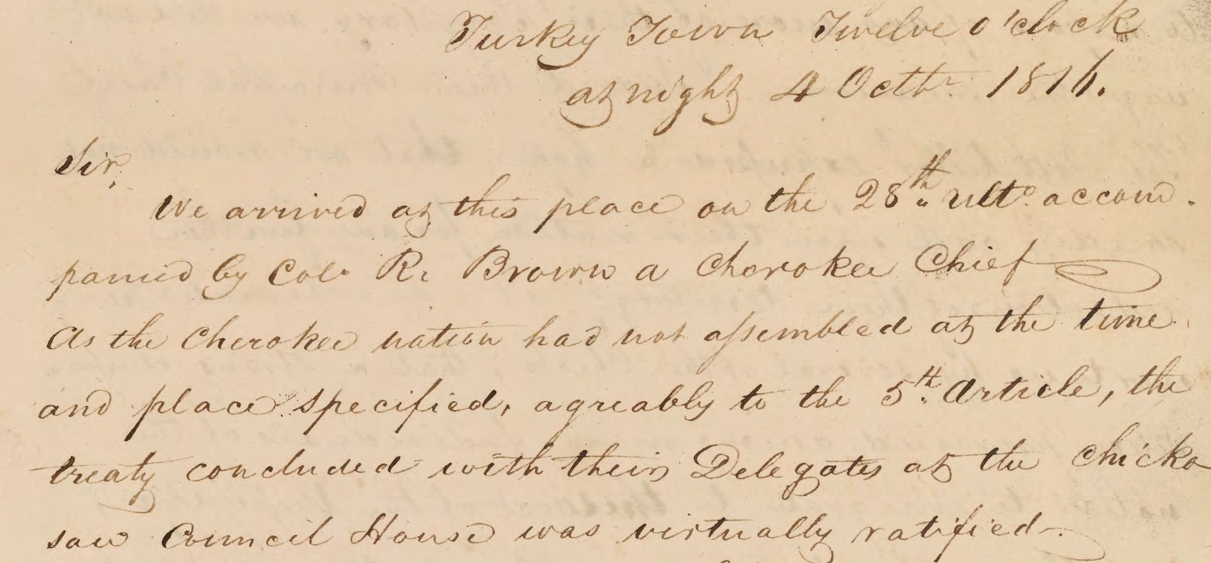 Turkey Town Twelve o'clock
at night 4 Octbr 1816.
Sir,
We arrived at this place on the 28th ulto. accom.
panied by Col. R. Brown a Cherokee Chief
As the Cherokee nation had not assembled at the time
and place specified, agreably to the 5th Article, the
treaty concluded with their Delegates at the Chicka
saw Council House was virtually ratified.